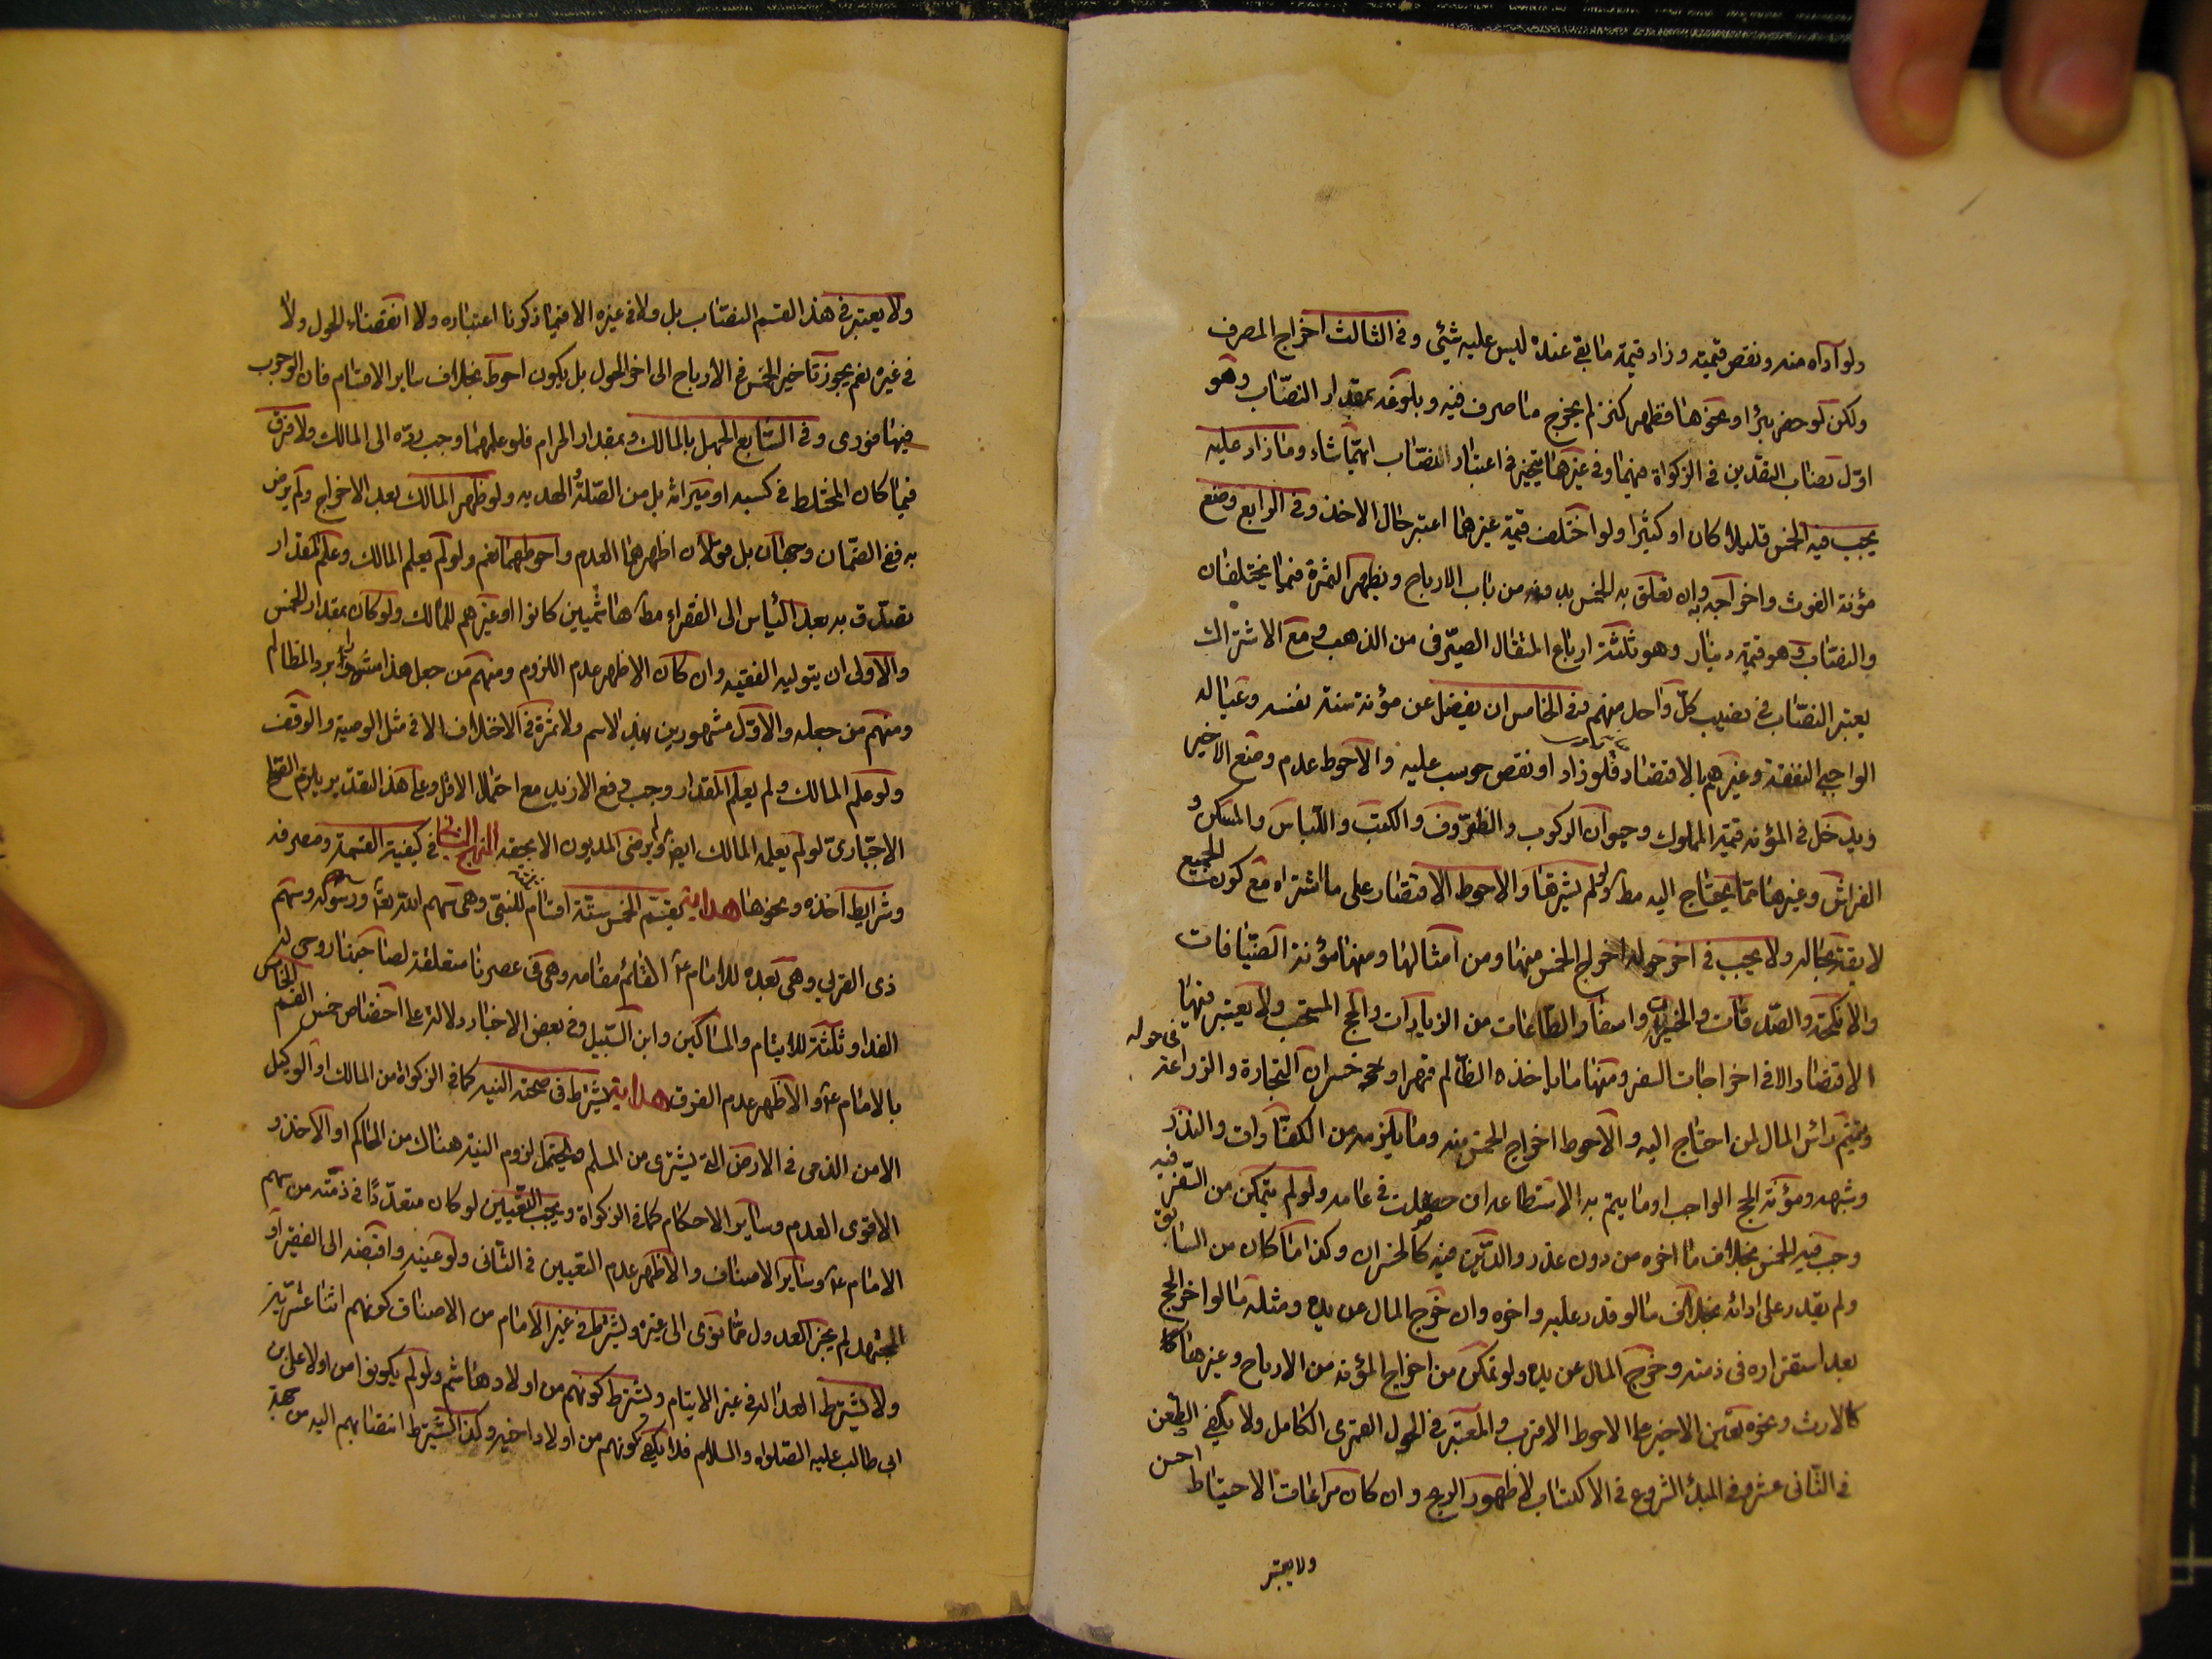 ولو آداه منه ونقص قيمته وزاد قيمة ما بقي عنده ليس عليه شئ وفي الثالث اخراج المصرف
ولكن لو حفر بئرا او نحوها فظهر كنز لم يخرج ما صرف فيه وبلوغه بمقدار النصاب وهو
اول نصاب النقدين في الزكواة منهما وفي غيرهما يتخير في اعتبار النصاب ايهما شاء وما زاد عليه
يجب فيه الخمس قليلا كان او كثيرا ولو اختلف قيمة غيرهما اعتبر حال الاخذ وفي الرابع وضع
مؤنة الغوث واخراجه وان تعلق به الخمس بدونه من باب الارباح ويظهر الثمرة فيما يختلفان
والنصاب وهو قيمة دينار وهو ثلثة ارباع المثقال الصيرفي من الذهب ومع الاشتراك
يعتبر النصاب في نصيب كل واحد منهم وفي الخامس ان يفضل عن مؤنة سنة نفسه وعياله
الواجبي النفقة وغيرهم بالاقتصاد فلو زاد او نقص حوسب عليه والاحوط عدم وضع الاخير
ويدخل في المؤنه قيمة المملوك وحيوان الركوب والظروف والكتب واللباس والمسكن و
الفراش وغيرها مما يحتاج اليه مط ولو لم يشترها والاحوط الاقتصار على ما اشتراه مع كون الجميع
لايقة بحاله ولا يجب في اخر حوله اخراج الخمس منها ومن امثالها ومنها مؤنة الضيافات
والانكحة والصدقات والخيرات واسفار الطاعات من الزيارات والحج المستحب ولا يعتبر فيها
الاقتصاد الا في اخراجات السفر ومنها ما ياخذه الظالم قهرا ونحوه خسران التجارة والزراعة في حوله
وتتميم رأس المال لمن احتاج اليه والاحوط اخراج الخمس منه وما يلزمه من الكفارات والنذر
وشبهه ومؤنة الحج الواجب او ما يتم به الاستطاعه ان حصلت في عامه ولو لم يتمكن من السفر فيه
وجب فيه الخمس بخلاف ما اخره من دون عذر والدين فيه كالخسران وكذا ما كان من السابق
ولم يقدر على ادائه بخلاف ما لو قدر عليه واخره وان خرج المال من يده ومثله ما لو اخر الحج
بعد استقراره في ذمته وخرج المال عن يده ولو تمكن من اخراج المؤنة من الارباح وغيرها
كالارث ونحوه تعين الاخير على الاحوط الاقرب والمعتبر في الحول القمري الكامل ولا يكفي الطعن
في الثاني عشر وفي المبدأ الشروع في الاكتساب لا ظهور الربح وان كان مراعات الاحتياط احسن
ولا يعتبر
ولا يعتبر في هذا القسم النصاب بل ولا في غيره الا فيما ذكرنا اعتباره ولا انقضاء الحول ولا
في غيره نعم يجوز تاخير الخمس في الارباح الى اخر الحول بل يكون احوط بخلاف ساير الاقسام فان الوجوب
فيها فوري وفي السابع الجهل بالمالك وبمقدار الحرام فلو علمهما وجب رده الى المالك ولا فرق
فيما كان المختلط في كسبه او ميراثه بل من الصلة الهديه ولو ظهر المالك بعد الاخراج ولم يرض
به ففي الضمان وجهان بل قولان اظهرهما العدم واحوطهما نعم ولو لم يعلم المالك وعلم المقدار
تصدق به بعد الياس الى الفقراء مط هاشميين كانوا او غيرهم للمالك ولو كان بمقدار الخمس
والاولى ان يتوليه الفقيه وان كان الاظهر عدم اللزوم ومنهم من جعل هذا مشهورا برد المظالم
ومنهم من جعله والاول مشهورين بهذا الاسم ولا ثمرة في الاختلاف الا في مثل الوصية والوقف
ولو علم المالك ولم يعلم المقدار وجب دفع الازيد مع احتمال الاقل وعلى هذا التقدير يلزم الصلح
الاجباري لو لم يعلم المالك ايضا ولم يرض المديون الا بحقه المنهاج الثاني في كيفية القسمة ومصرفه
وشرايط اخذه ونحوها هداية يقسم الخمس ستة اقسام ثلثة للنبي وهي سهم الله تعالى ورسوله وسهم
ذي القربى وهي بعده للامام ع القائم مقامه وهي في عصرنا متعلقة لصاحبنا روحي له
الفداء وثلثة للايتام والمساكين وابن السبيل وفي بعض الاخبار دلالة على اختصاص خمس القسم الخامس
بالامام ع والاظهر عدم الفرق هداية يشترط في صحته النيه كما في الزكواة من المالك او الوكيل
الا من الذمي في الارض التي يشتري من المسلم ويحتمل لزوم النية هناك من الحاكم او الاخذ و
الاقوى العدم وساير الاحكام كما في الزكواة ويجب التعيين لو كان متعددا في ذمته من سهم
الامام ع وساير الاصناف والاظهر عدم التعيين في الثاني ولو عينه واقبضه الى الفقير او
المجتهد لم يجز العدول مما نوى الى غيره ويشترط في غير الامام من الاصناف كونهم اثنا عشرية
ولا يشترط العدالة في غير الايتام ويشترط كونهم من اولاد هاشم ولو لم يكونوا من اولاد علي بن
ابي طالب عليه الصلواه والسلام فلا يكفي كونهم من اولاد اخيه وكذا يشترط انتسابهم اليه من جهة